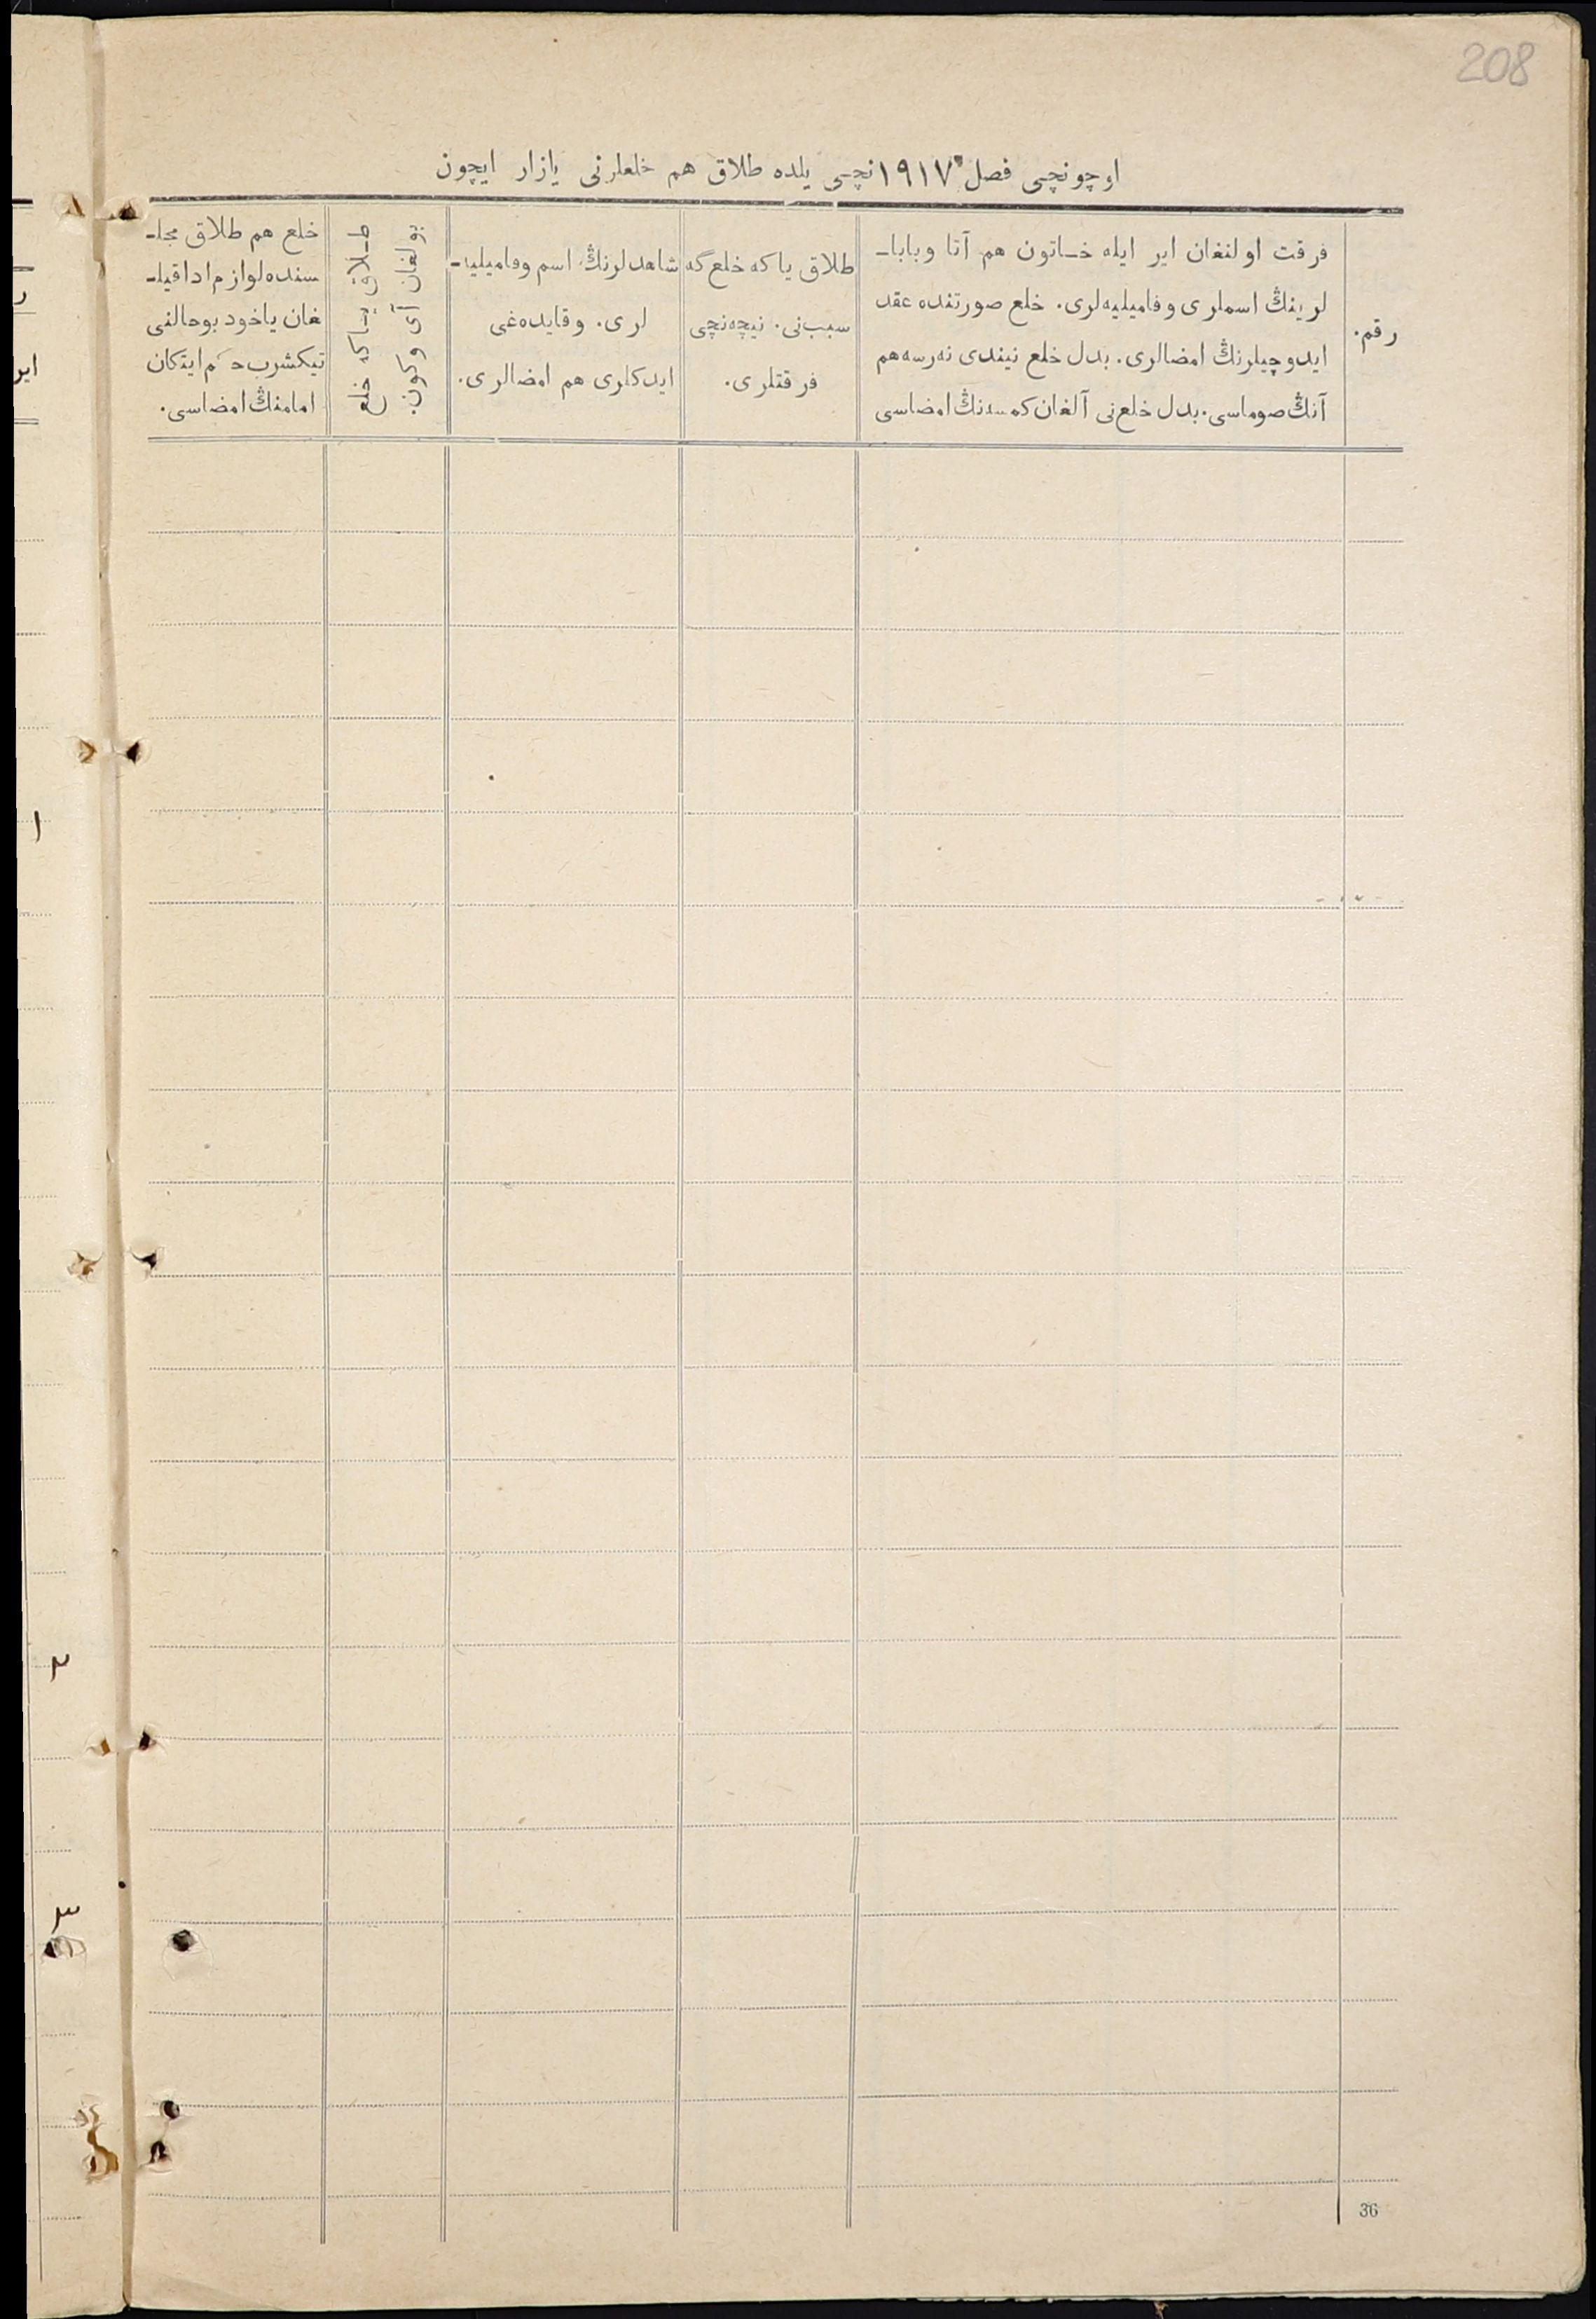 208
اوچونچی فصل ۱۹۱۷نچی یلده طلاق هم خلعلرنی یازار ایچون
رقم.
فرقت اولنغان ایر ایله خاتون هم آتا وبابا-
لرینڭ اسملری وفامیلیه‌لری. خلع صورتنده عقد
ایدوچیلرنڭ امضالری. بدل خلع نیندی نه‌رسه هم
آنڭ صوماسی. بدل خلع‌نی آلغان کمسه‌نڭ امضاسی
طلاق یاکه خلع‌گه
سبب‌نی. نیچه‌نچی
فرقتلری.
شاهدلرنڭ اسم وفامیلیه-
لری. وقایده‌غی
ایدکلری هم امضالری.
طلاق یاکه خلع
بولغان آی وکون.
خلع هم طلاق مجل-
سنده لوازم ادا قیل-
غان یاخود بوحالنی
تیکشرب حکم ایتکان
امامنڭ امضاسی.
ر
ایر
۱
۲
۳
36